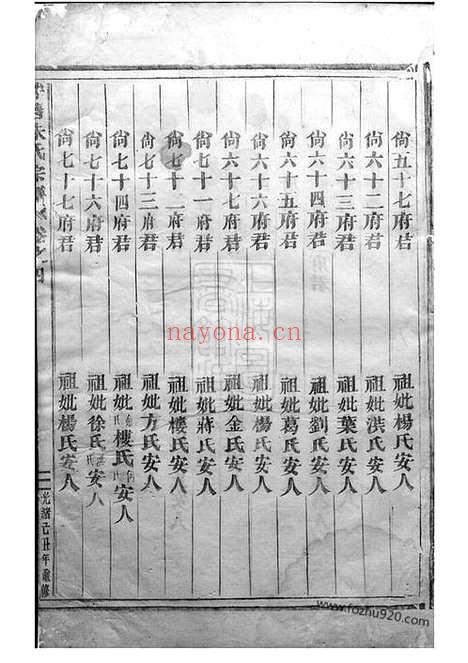 尙五十七府君 祖妣楊氏安人
尙六十二府君 祖妣洪氏安人
尙六十三府君 祖妣葉氏安人
尙六十四府君 祖妣劉氏安人
尙六十五府君 祖妣葛氏安人
尙六十六府君 祖妣楊氏安人
尙六十七府君 祖妣金氏安人
尙七十一府君 祖妣蔣氏安人
尙七十二府君 祖妣樓氏安人
尙七十三府君 祖妣方氏安人
尙七十四府君 祖妣樓氏安人
尙七十六府君 祖妣徐氏安人
尙七十七府君 祖妣楊氏安人
氏宗譜 卷之
光緒己丑年重修
nayona.cn
www.fozhu920.com